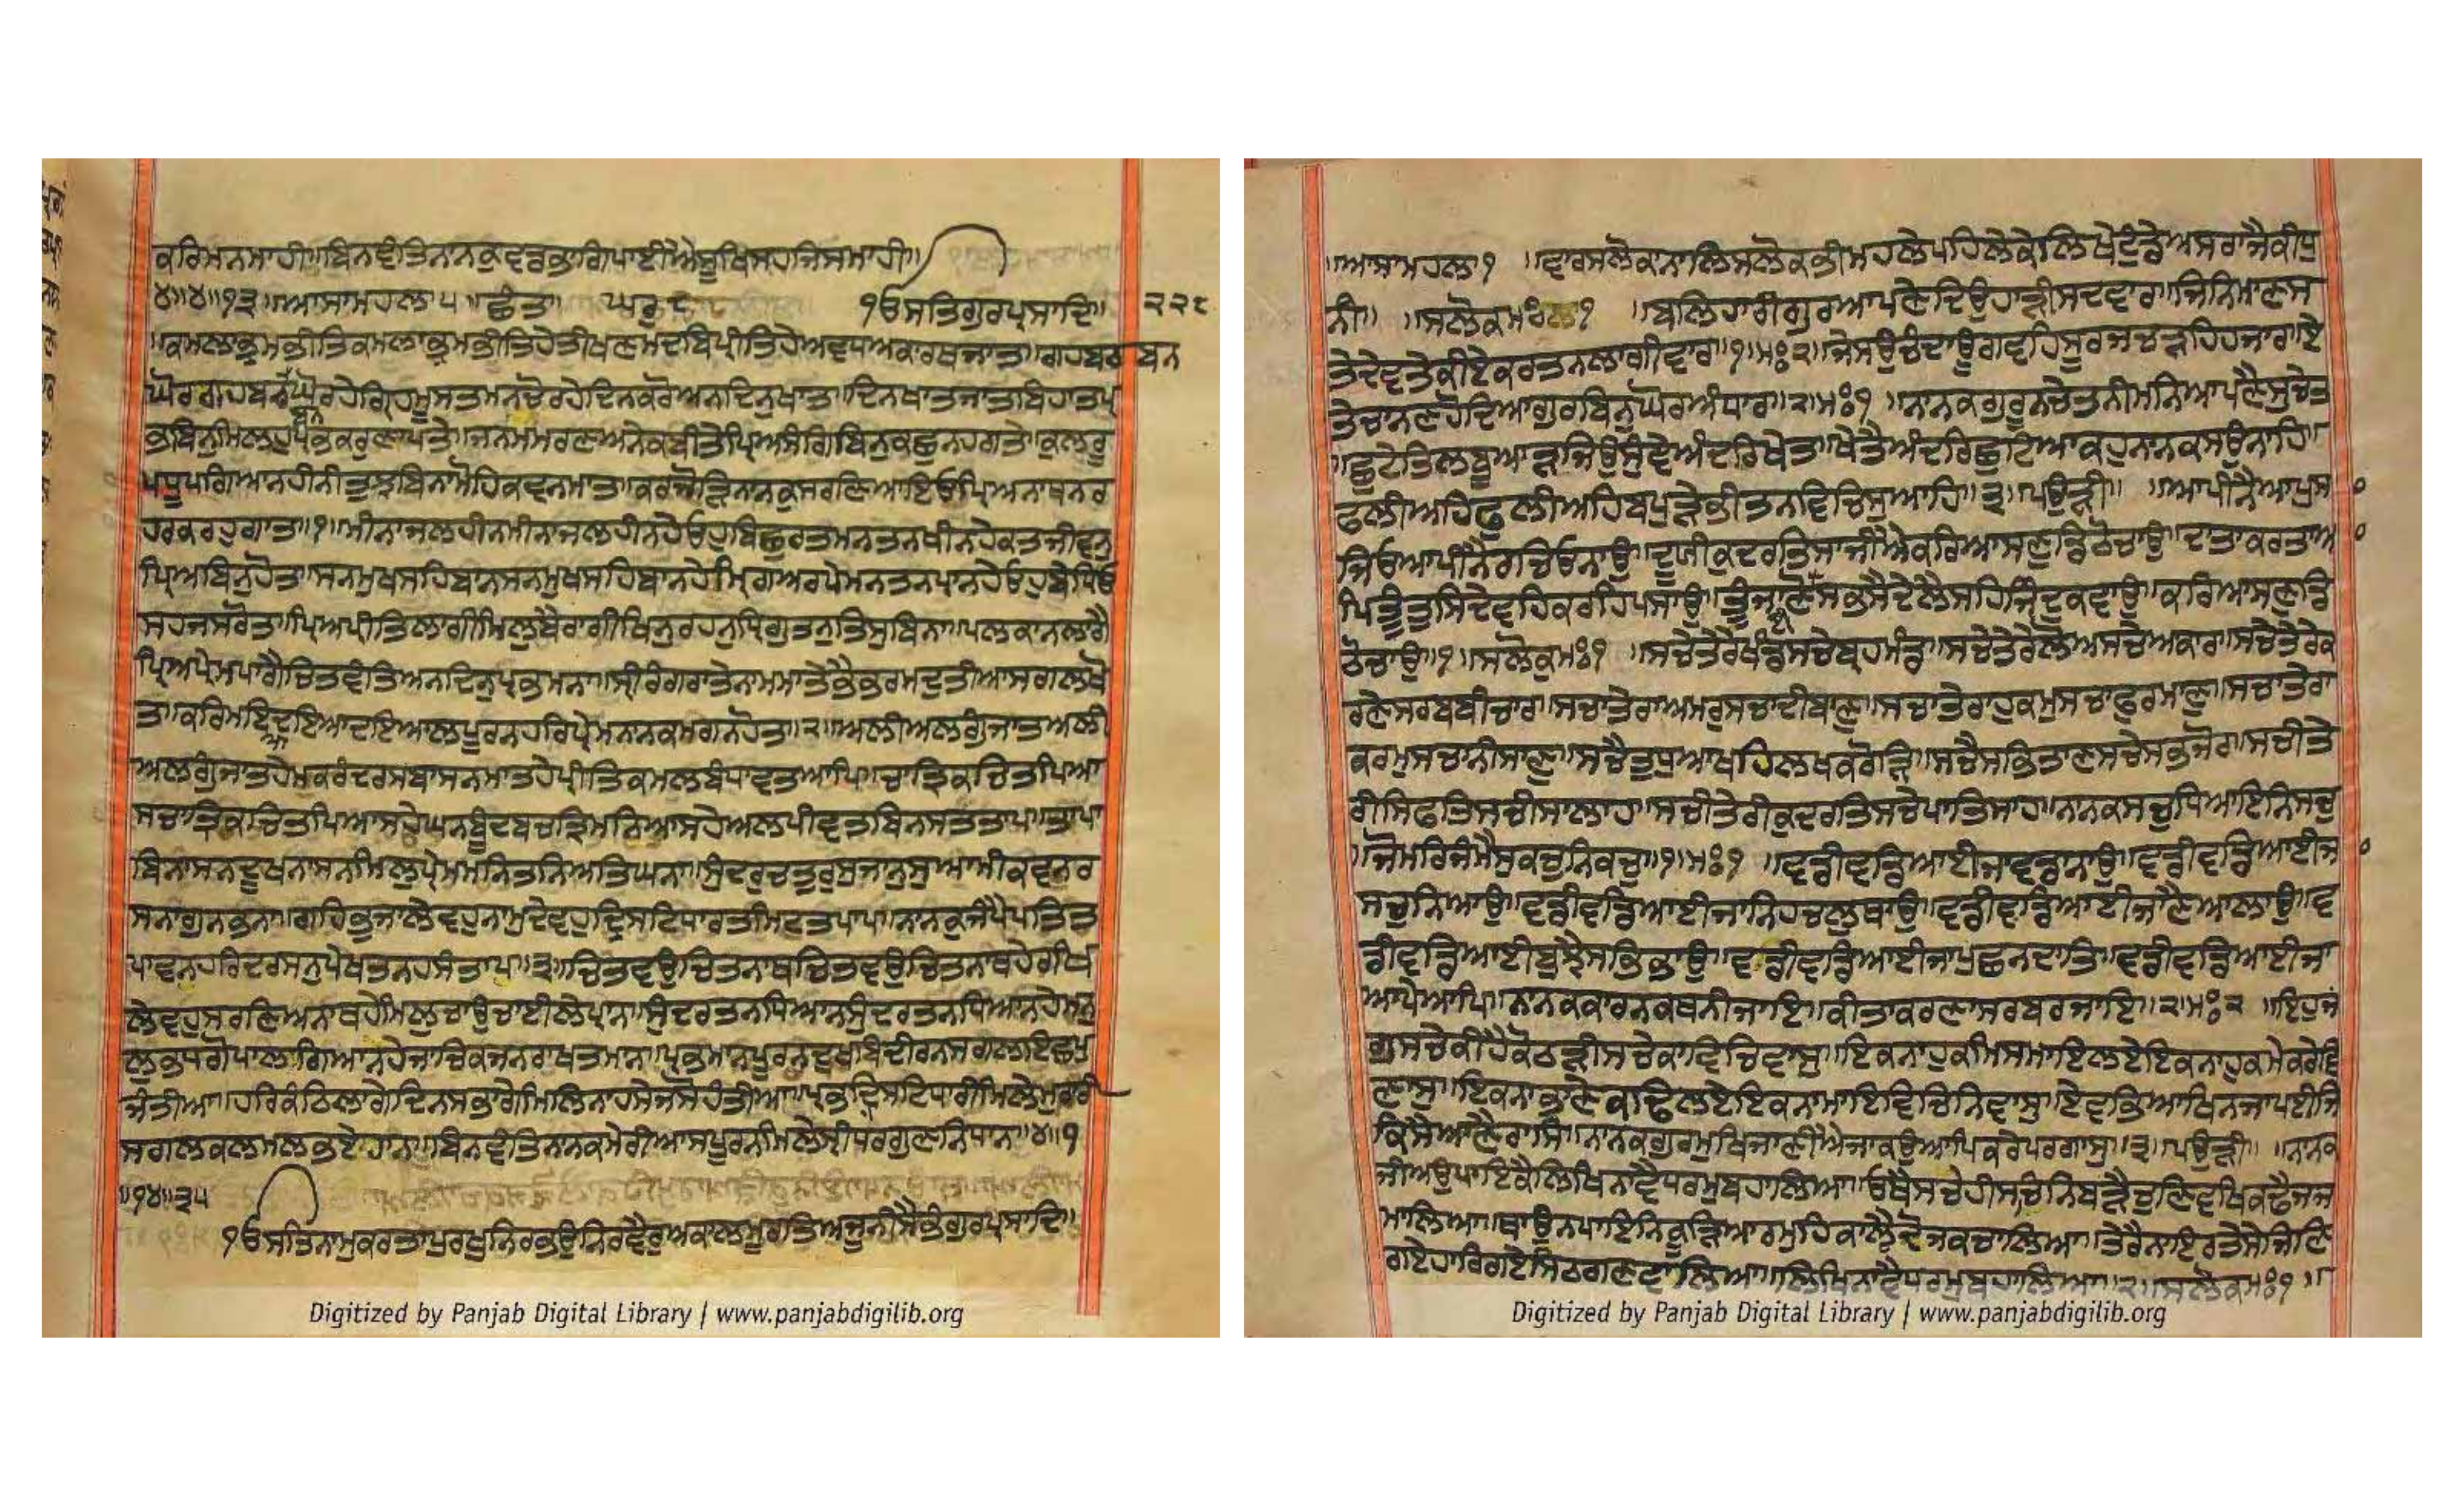 ਕਰਿਮਨਮਾਹੀ॥ਬਿਨਵੰਤਿਨਾਨਕੁਵਡਭਾਗਿਪਾਈਐਸੂਖਿਸਹਜਿਸਮਾਹੀ॥
੪॥੪॥੧੩॥ਆਸਾਮਹਲਾ੫॥ਛੰਤਾ॥ ਘਰੁ੮ ੧ੳਸਤਿਗੁਰਪ੍ਰਸਾਦਿ॥ ੨੨੮
॥ਕਮਲਾਭ੍ਰਮਭੀਤਿਕਮਲਾਭ੍ਰਮਭੀਤਿਹੇਤੀਖਣਮਦਬਿਪ੍ਰੀਤਿਹੇਅਵਧਅਕਾਰਥਜਾਤ॥ਗਹਬਰਬਨ
ਘੋਰਗਹਬਰਬਨਘੋਰਹੇਗ੍ਰਿਹਮੂਸਤਮਨਚੋਰਹੇਦਿਨਕਰੋਅਨਦਿਨੁਖਾਤ॥ਦਿਨਖਾਤਜਾਤਬਿਹਾਤਪ੍ਰ
ਭਬਿਨੁਮਿਲਹੁਪ੍ਰਭਕਰੁਣਾਪਤੇ॥ਜਨਮਮਰਣਅਨੇਕਬੀਤੇਪ੍ਰਿਅਸੰਗਿਬਿਨੁਕਛੁਨਹਗਤੇ॥ਕੁਲਰੂ
ਪਧੂਪਗਿਆਨਹੀਨੀਤੁਝਬਿਨਾਮੋਹਿਕਵਨਮਾਤ॥ਕਰਜੋੜਿਨਾਨਕੁਸਰਣਿਆਇਓਪ੍ਰਿਅਨਾਥਨਰ
ਹਰਕਰਹੁਗਾਤ॥੧॥ਮੀਨਾਜਲਹੀਨਮੀਨਾਜਲਹੀਨਹੇਓਹੁਬਿਛੁਰਤਮਨਤਨਖੀਨਹੇਕਤਜੀਵਨੁ
ਪ੍ਰਿਅਬਿਨੁਹੋਤ॥ਸਨਮੁਖਸਹਿਬਾਨਸਨਮੁਖਸਹਿਬਾਨਹੇਮ੍ਰਿਗਅਰਪੇਮਨਤਨਪ੍ਰਾਨਹੇਓਹੁਬੇਧਿਓ
ਸਹਜਸਰੋਤ॥ਪ੍ਰਿਅਪ੍ਰੀਤਿਲਾਗੀਮਿਲੁਬੈਰਾਗੀਖਿਨੁਰਹਨੁਧ੍ਰਿਗੁਤਨੁਤਿਸੁਬਿਨਾ॥ਪਲਕਾਨਲਾਗੈ
ਪ੍ਰਿਅਪ੍ਰੇਮਪਾਗੈਚਿਤਵੰਤਿਅਨਦਿਨੁਪ੍ਰਭਮਨਾ॥ਸ੍ਰੀਰੰਗਰਾਤੇਨਾਮਮਾਤੇਭੈਭਰਮਦੁਤੀਆਸਗਲਖੋ
ਤ॥ਕਰਿਮਇਆਦਇਆਦਇਆਲਪੂਰਨਹਰਿਪ੍ਰੇਮਨਾਨਕਮਗਨਹੋਤ॥੨॥ਅਲੀਅਲਗੁੰਜਾਤਅਲੀ
ਅਲਗੁੰਜਾਤਹੇਮਕਰੰਦਰਸਬਾਸਨਮਾਤਹੇਪ੍ਰੀਤਿਕਮਲਬੰਧਾਵਤਆਪ॥ਚਾਤ੍ਰਿਕਚਿਤਪਿਆ
ਸਚਾਤ੍ਰਿਕਚਿਤਪਿਆਸਹੇਘਨਬੂੰਦਬਚਤ੍ਰਿਮਨਿਆਸਹੇਅਲਪੀਵਤਬਿਨਸਤਤਾਪ॥ਤਾਪਾ
ਬਿਨਾਸਨਦੂਖਨਾਸਨਮਿਲੁਪ੍ਰੇਮਮਨਿਤਨਿਅਤਿਘਨਾ॥ਸੁੰਦਰੁਚਤੁਰੁਸੁਜਾਨੁਸੁਆਮੀਕਵਨਰ
ਸਨਾਗੁਨਭਨਾ॥ਗਹਿਭੁਜਾਲੇਵਹੁਨਾਮੁਦੇਵਹੁਦ੍ਰਿਸਟਿਧਾਰਤਮਿਟਤਪਾਪ॥ਨਾਨਕੁਜੰਪੈਪਤਿਤ
ਪਾਵਨਹਰਿਦਰਸਨੁਪੇਖਤਨਹਸੰਤਾਪ॥੩॥ਚਿਤਵਉਚਿਤਨਾਥਚਿਤਵਉਚਿਤਨਾਥਹੇਰਖਿ
ਲੇਵਹੁਸਰਣਿਅਨਾਥਹੇਮਿਲੁਚਾਉਚਾਈਲੇਪ੍ਰਾਨ॥ਸੁੰਦਰਤਨਧਿਆਨਸੁੰਦਰਤਨਧਿਆਨਹੇਮਨੁ
ਲੁਭਧਗੋਪਾਲਗਿਆਨਹੇਜਾਚਿਕਜਨਰਾਖਤਮਾਨ॥ਪ੍ਰਭਮਾਨਪੂਰਨਦੁਖਬਿਦੀਰਨਸਗਲਇਛਪੁ
ਜੰਤੀਆ॥ਹਰਿਕੰਠਿਲਾਗੇਦਿਨਸਭਾਗੇਮਿਲਿਨਾਹਸੇਜਸੋਹੰਤੀਆ॥ਪ੍ਰਭਦ੍ਰਿਸਟਿਧਾਰੀਮਿਲੇਮੁਰਾਰੀ
ਸਗਲਕਲਮਲਭਏਹਾਨ॥ਬਿਨਵੰਤਿਨਾਨਕਮੇਰੀਆਸਪੂਰਨਮਿਲੇਸ੍ਰੀਧਰਗੁਣਨਿਧਾਨ॥੪॥੧
॥੧੪॥੩੫
੧ੳਸਤਿਨਾਮੁਕਰਤਾਪੁਰਖੁਨਿਰਭਉਨਿਰਵੈਰੁਅਕਾਲਮੂਰਤਿਅਜੂਨੀਸੈਭੰਗੁਰਪ੍ਰਸਾਦਿ॥
॥ਆਸਾਮਹਲਾ੧ ॥ਵਾਰਸਲੋਕਾਨਾਲਿਸਲੋਕਭੀਮਹਲੇਪਹਿਲੇਕੇਲਿਖੇਟੁੰਡੇਅਸਰਾਜੈਕੀਧੁ
ਨੀ॥ ॥ਸਲੋਕਮਃਲਾ੧ ॥ਬਲਿਹਾਰੀਗੁਰਆਪਣੇਦਿਉਹਾੜੀਸਦਵਾਰ॥ਜਿਨਿਮਾਣਸ
ਤੇਦੇਵਤੇਕੀਏਕਰਤਨਲਾਗੀਵਾਰ॥੧॥ਮਃ੨॥ਜੇਸਉਚੰਦਾਉਗਵਹਿਸੂਰਜਚੜਹਿਹਜਾਰ॥ਏ
ਤੇਚਾਨਣਹੋਦਿਆਗੁਰਬਿਨੁਘੋਰਅੰਧਾਰ॥੨॥ਮਃ੧ ॥ਨਾਨਕਗੁਰੂਨਚੇਤਨੀਮਨਿਆਪਣੈਸੁਚੇਤ
॥ਛੁਟੇਤਿਲਬੂਆੜਜਿਉਸੁੰਞੇਅੰਦਰਿਖੇਤ॥ਖੇਤੈਅੰਦਰਿਛੁਟਿਆਕਹੁਨਾਨਕਸਉਨਾਹ॥
ਫਲੀਅਹਿਫੁਲੀਅਹਿਬਪੁੜੇਭੀਤਨਵਿਚਿਸੁਆਹ॥੩॥ਪਉੜੀ॥ ॥ਆਪੀਨੈਆਪੁਸਾ
ਜਿਓਆਪੀਨੈਰਚਿਓਨਾਉ॥ਦੁਯੀਕੁਦਰਤਿਸਾਜੀਐਕਰਿਆਸਣੁਡਿਠੋਚਾਉ॥ਦਾਤਾਕਰਤਾਆ
ਪਿਤੂੰਤੁਸਿਦੇਵਹਿਕਰਹਿਪਸਾਉ॥ਤੂੰਜਾਣੋਈਸਭਸੈਦੇਲੈਸਹਿਜਿੰਦੁਕਵਾਉ॥ਕਰਿਆਸਣੁਡਿ
ਠੋਚਾਉ॥੧॥ਸਲੋਕੁਮਃ੧ ॥ਸਚੇਤੇਰੇਖੰਡਸਚੇਬ੍ਰਹਮੰਡ॥ਸਚੇਤੇਰੇਲੋਅਸਚੇਅਕਾਰ॥ਸਚੇਤੇਰੇਕ
ਰਣੇਸਰਬਬੀਚਾਰ॥ਸਚਾਤੇਰਾਅਮਰੁਸਚਾਦੀਬਾਣੁ॥ਸਚਾਤੇਰਾਹੁਕਮੁਸਚਾਫੁਰਮਾਣੁ॥ਸਚਾਤੇਰਾ
ਕਰਮੁਸਚਾਨੀਸਾਣੁ॥ਸਚੈਤੁਧੁਆਖਹਿਲਖਕਰੋੜਿ॥ਸਚੈਸਭਿਤਾਣਸਚੇਸਭਜੋਰ॥ਸਚੀਤੇ
ਰੀਸਿਫਤਿਸਚੀਸਾਲਾਹ॥ਸਚੀਤੇਰੀਕੁਦਰਤਿਸਚੇਪਾਤਿਸਾਹ॥ਨਾਨਕਸਚੁਧਿਆਇਨਿਸਚੁ
॥ਜੋਮਰਿਜੰਮੈਸੁਕਚੁਨਿਕਚੁ॥੧॥ਮਃ੧ ॥ਵਡੀਵਡਿਆਈਜਾਵਡਾਨਾਉ॥ਵਡੀਵਡਿਆਈਜਾ
ਸਚੁਨਿਆਉ॥ਵਡੀਵਡਿਆਈਜਾਨਿਹਚਲੁਥਾਉ॥ਵਡੀਵਡਿਆਈਜਾਣੈਆਲਾਉ॥ਵ
ਡੀਵਡਿਆਈਬੁਝੈਸਭਿਭਾਉ॥ਵਡੀਵਡਿਆਈਜਾਪੁਛਨਦਾਤਿ॥ਵਡੀਵਡਿਆਈਜਾ
ਆਪੇਆਪਿ॥ਨਾਨਕਕਾਰਨਕਥਨੀਜਾਇ॥ਕੀਤਾਕਰਣਾਸਰਬਰਜਾਇ॥੨॥ਮਃ੨ ॥ਇਹੁਜ
ਗੁਸਚੇਕੀਹੈਕੋਠੜੀਸਚੇਕਾਵਿਚਿਵਾਸੁ॥ਇਕਨਾਹੁਕਮਿਸਮਾਇਲਏਇਕਨਾਹੁਕਮੇਕਰੇਵਿ
ਣਾਸੁ॥ਇਕਨਾਭਾਣੇਕਢਿਲਏਇਕਨਾਮਾਇਵਿਚਿਨਿਵਾਸੁ॥ਏਵਭਿਆਖਿਨਜਾਪਈਜਿ
ਕਿਸੈਆਣੇਰਾਸਿ॥ਨਾਨਕਗੁਰਮੁਖਿਜਾਣੀਐਜਾਕਉਆਪਿਕਰੇਪਰਗਾਸੁ॥੩॥ਪਉੜੀ॥ ॥ਨਾਨਕ
ਜੀਅਉਪਾਇਕੈਲਿਖਿਨਾਵੈਧਰਮੁਬਹਾਲਿਆ॥ਓਥੈਸਚੇਹੀਸਚਿਨਿਬੜੈਚੁਣਿਵਖਿਕਢੈਜਜ
ਮਾਲਿਆ॥ਥਾਉਨਪਾਇਨਿਕੂੜਿਆਰਮੁਹਿਕਾਲੈਦੋਜਕਚਾਲਿਆ॥ਤੇਰੈਨਾਇਰਤੇਸੇਜਿਣਿ
ਗਏਹਾਰਿਗਏਸਿਠਗਣਵਾਲਿਆ॥ਲਿਖਿਨਾਵੈਧਰਮੁਬਹਾਲਿਆ॥੨॥ਸਲੋਕਮਃ੧ ॥
Digitized by Panjab Digital Library | www.panjabdigilib.org
Digitized by Panjab Digital Library | www.panjabdigilib.org